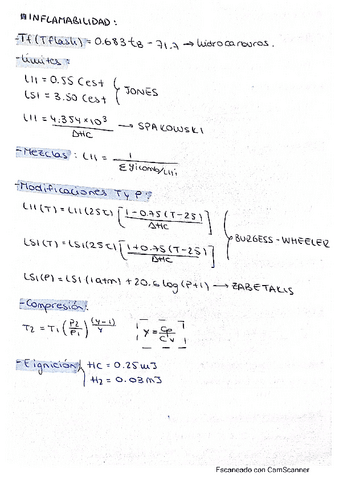 INFLAMABILIDAD:
-Tf (Tflash) = 0.683 tB - 71.7 → hidrocarburos.
-Límites:
LII = 0.55 Cest
LSI = 3.50 Cest } JONES
LII = 4.354 × 10³ / ΔHC → SPAKOWSKI
-Mezclas: LII = 1 / Σ yicomb/LIIi
-Modificaciones T y P:
LII(T) = LII(25C) [1 - 0.75(T-25) / ΔHC]
LSI(T) = LSI(25C) [1 + 0.75(T-25) / ΔHC] } BURGESS-WHEELER
LSI(P) = LSI(1atm) + 20.6 log(P+1) → ZABETAKIS
-Compresión.
T2 = T1 (P2/P1)^((γ-1)/γ) γ = Cp/Cv
-E ignición { HC = 0.25 mJ
H2 = 0.03 mJ
Escaneado con CamScanner